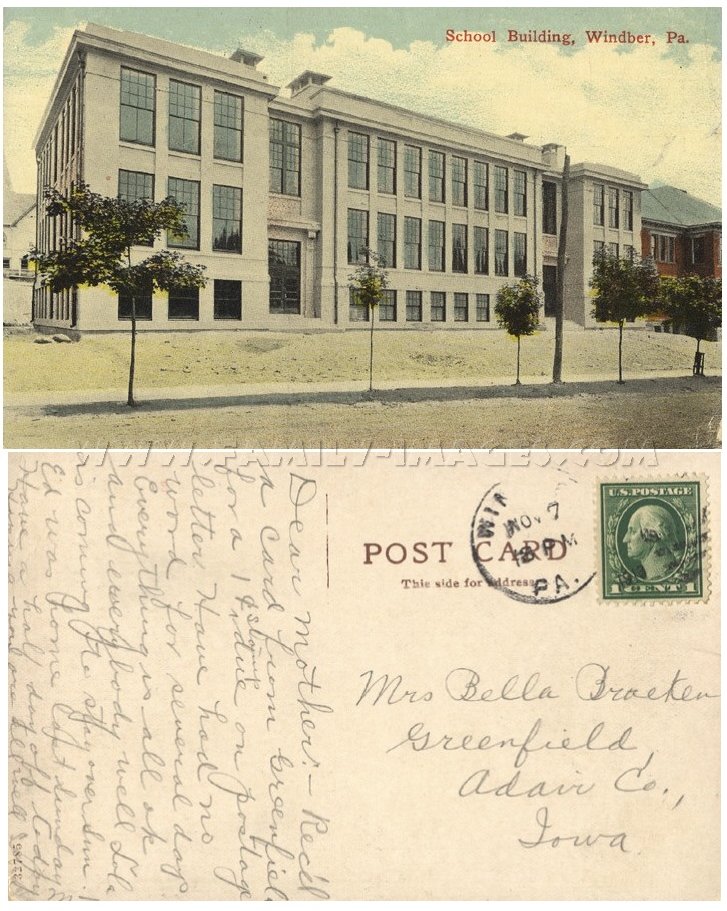 School Building, Windber, Pa.
WWW.FAMILY-IMAGES.COM
Dear Mother:- Rec'd
a card from Greenfield
for a 1¢ stamp
due on postage
letter. Have had no
word for several days
Everything is all ok
and everybody well
is coming to stay over Sun.
Ed was home last Sunday
Have a half day off today
POST CARD
This side for address
WIN
NOV 7
PM
PA.
U.S. POSTAGE
1 CENT 1
Mrs Bella Bracken
Greenfield,
Adair Co.,
Iowa